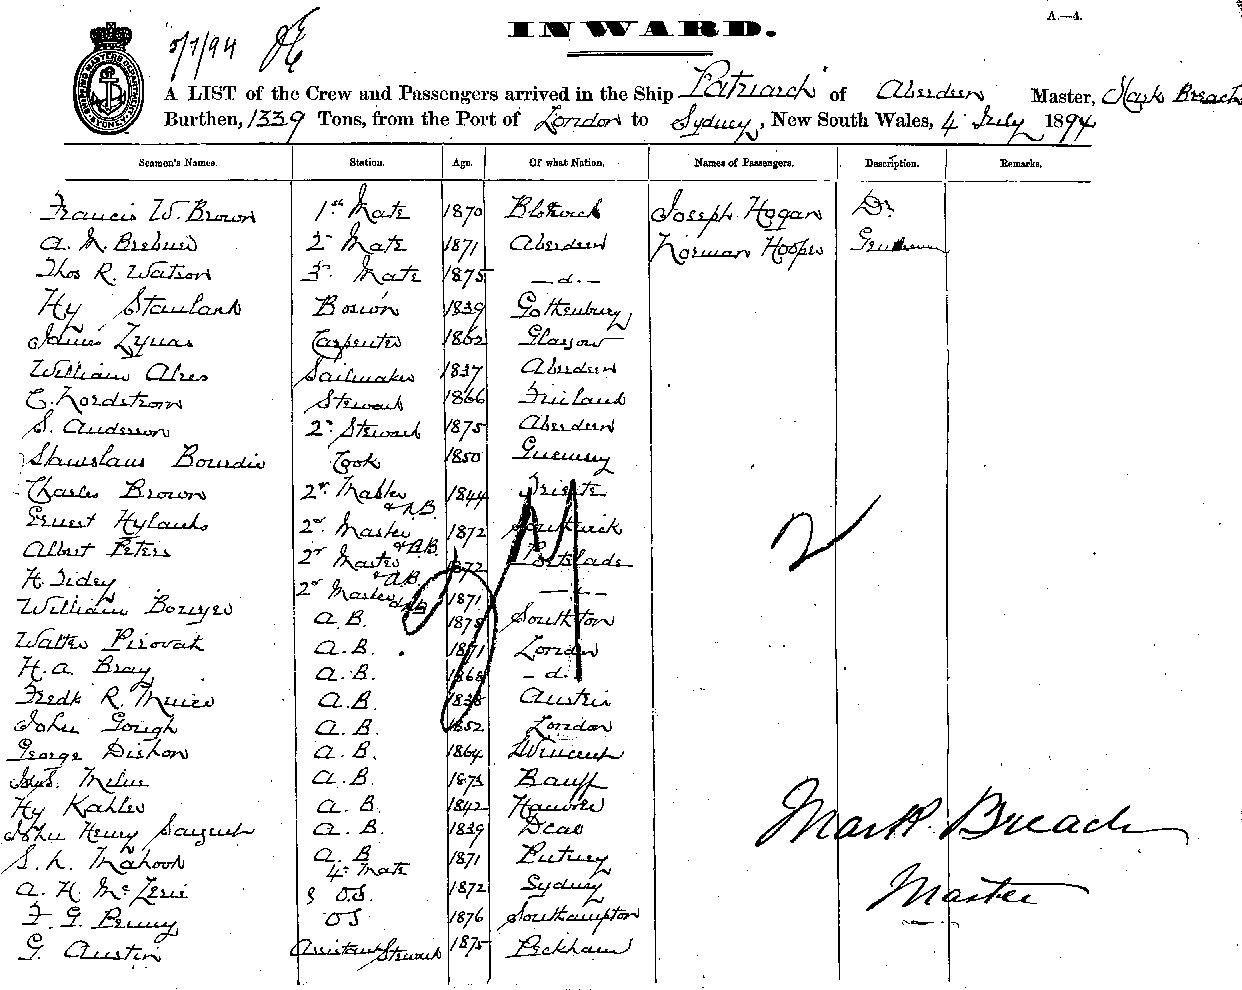 A.—4.
INWARD.
5/7/94
A LIST of the Crew and Passengers arrived in the Ship Patriarch of Aberdeen Master, Mark Breach
Burthen, 1339 Tons, from the Port of London to Sydney, New South Wales, 4 July 1894
Seamen's Names. Station. Age. Of what Nation. Names of Passengers. Description. Remarks.
Francis W. Brown 1st Mate 1870 Joseph Hogan Dr
A. M. 2nd Mate 1871 Aberdeen Norman Hooper Gentleman
Thos R. Watson 3rd Mate 1875 - d. -
Hy 1839 Gothenburg
James Carpenter 1862 Glasgow
William Sailmaker 1837 Aberdeen
C. Nordstrom Steward 1866 Finland
S. Anderson 2nd Steward 1875 Aberdeen
Stanislaus Bourdie Cook 1850 Guernsey
Charles Brown 2nd Master & A.B. 1844 Trieste
Ernest Hylands 2nd Master & A.B. 1872 Southwick
Albert Peters 2nd Master & A.B. 1872 Portslade
H. Tidey 2nd Master & A.B. 1871
William Bowyer A.B. 1878 Southton
Walter A.B. 1871 London
H. A. Bray A.B. 1868 - d. -
Fredk R. A.B. 1838 Austria
John Gough A.B. 1852 London
George Dishon A.B. 1864
Milne A.B. 1873 Banff
Hy Kahler A.B. 1842 Hanover
John Henry Sargent A.B. 1839 Deal
S. A.B. 1871 Putney
A. H. 4th Mate & O.S. 1872 Sydney
F. G. Penny OS 1876 Southampton
G. Austin Assistant Steward 1875 Peckham
24
2
Mark Breach
Master